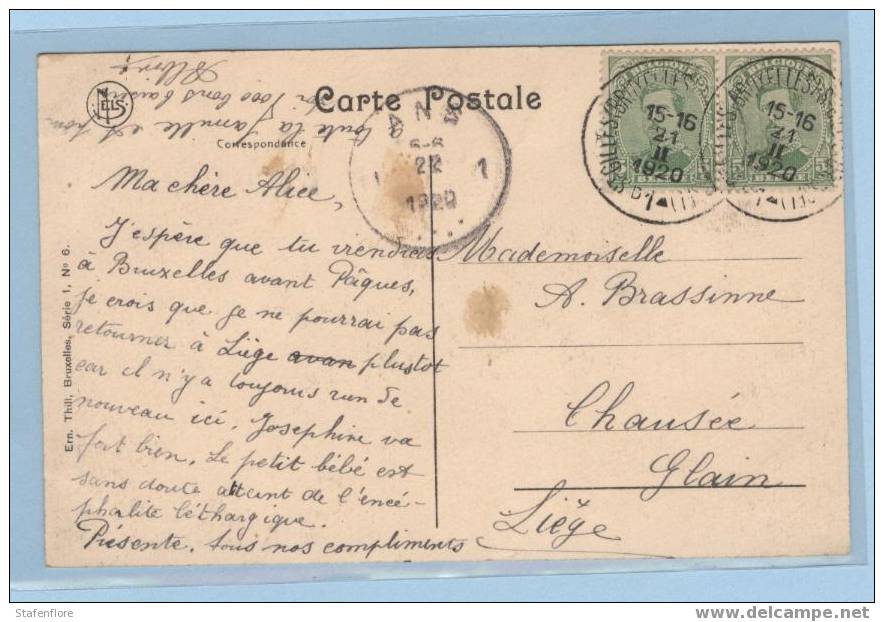 Carte Postale
Correspondance
NELS
Ma chère Alice,
J'espère que tu viendras
à Bruxelles avant Pâques,
je crois que je ne pourrai pas
retourner à Liège avan plustot
car il n'y a toujours rien de
nouveau ici. Joséphine va
fort bien. Le petit bébé est
sans doute atteint de l'encé-
phalite léthargique.
Présente, tous nos compliments
toute la famille et
1000 bons baisers
Mademoiselle
A. Brassinne
Chausée
Glain
Liège
Ern. Thill, Bruxelles, Série 1, No 6.
ANS
22
1920
15-16
21
II
1920
15-16
21
II
1920
Stafenflore
www.delcampe.net